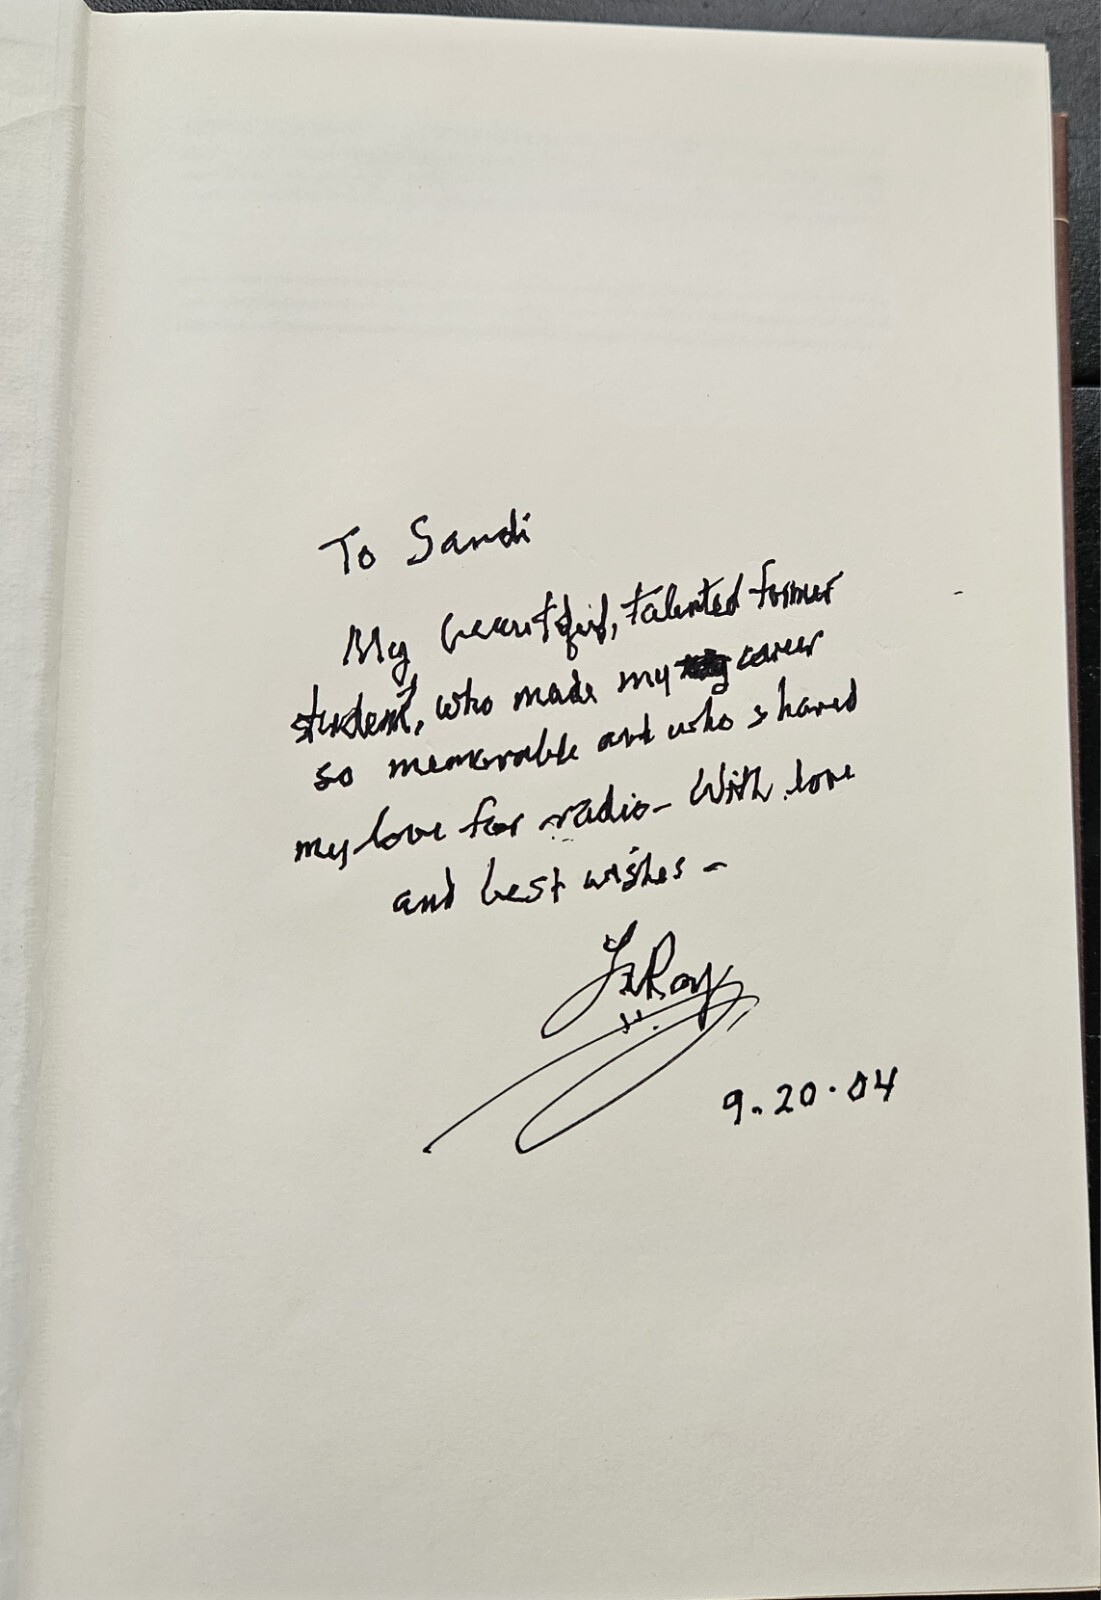 To Sandi
My beautiful, talented former
student, who made my career
so memorable and who shared
my love for radio - With love
and best wishes -
LeRoy
9.20.04